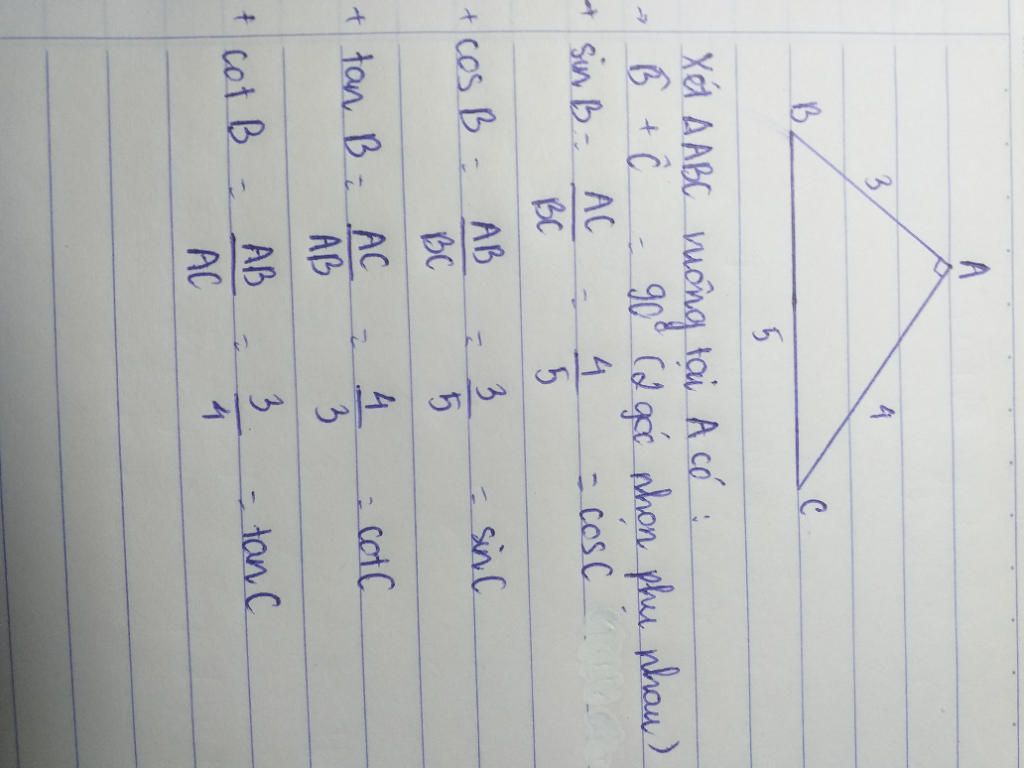 A
3
4
B
C
5
Xét ΔABC vuông tại A có :
→ B̂ + Ĉ = 90⁰ (2 góc nhọn phụ nhau)
+ sin B = AC/BC = 4/5 = cos C
+ cos B = AB/BC = 3/5 = sin C
+ tan B = AC/AB = 4/3 = cot C
+ cot B = AB/AC = 3/4 = tan C